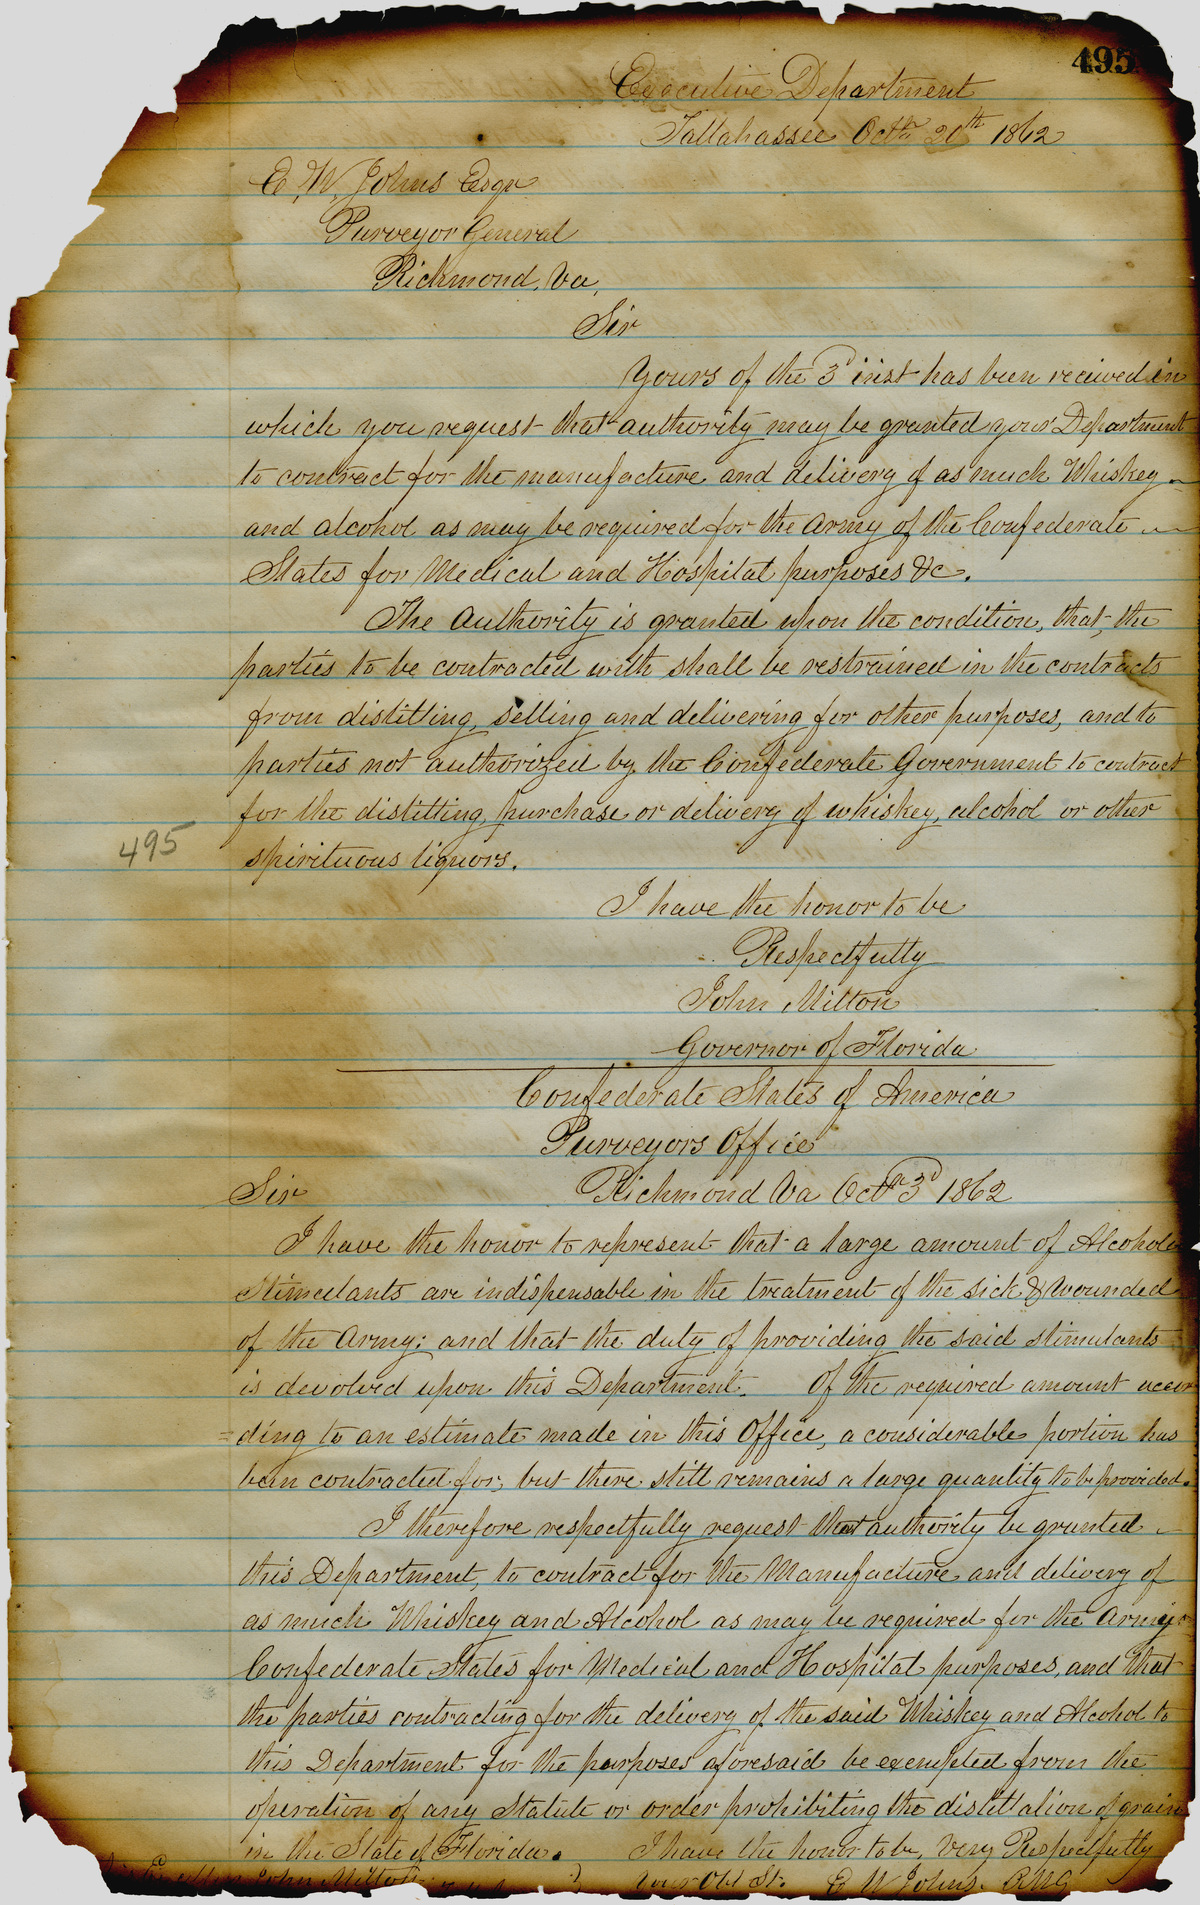 495
Executive Department
Tallahassee Octr 20th 1862
E. W. Johns Esqr
Purveyor General
Richmond, Va,
Sir
Yours of the 3d inst has been received in
which you request that authority may be granted your Department
to contract for the manufacture and delivery of as much Whiskey
and alcohol as may be required for the Army of the Confederate
States for Medical and Hospital purposes &c.
The Authority is granted upon the condition, that, the
parties to be contracted with shall be restrained in the contracts
from distilling, selling and delivering for other purposes, and to
parties not authorized by the Confederate Government to contract
for the distilling, purchase or delivery of whiskey, alcohol or other
495
spirituous liquors.
I have the honor to be
Respectfully
John Milton
Governor of Florida
Confederate States of America
Purveyors Office
Sir Richmond Va Octr 3d 1862
I have the honor to represent that a large amount of Alcoholic
Stimulants are indispensable in the treatment of the sick & wounded
of the Army: and that the duty of providing the said stimulants
is devolved upon this Department. Of the required amount accor
=ding to an estimate made in this Office, a considerable portion has
been contracted for, but there still remains a large quantity to be provided.
I therefore respectfully request that authority be granted
this Department, to contract for the Manufacture and delivery of
as much Whiskey and Alcohol as may be required for the Army
Confederate States for Medical and Hospital purposes, and that
the parties contracting for the delivery of the said Whiskey and Alcohol to
this Department for the purposes aforesaid be exempted from the
operation of any Statute or order prohibiting the distillation of grain
in the State of Florida. I have the honor to be, very Respectfully
John Milton Your Obt St. E W Johns.